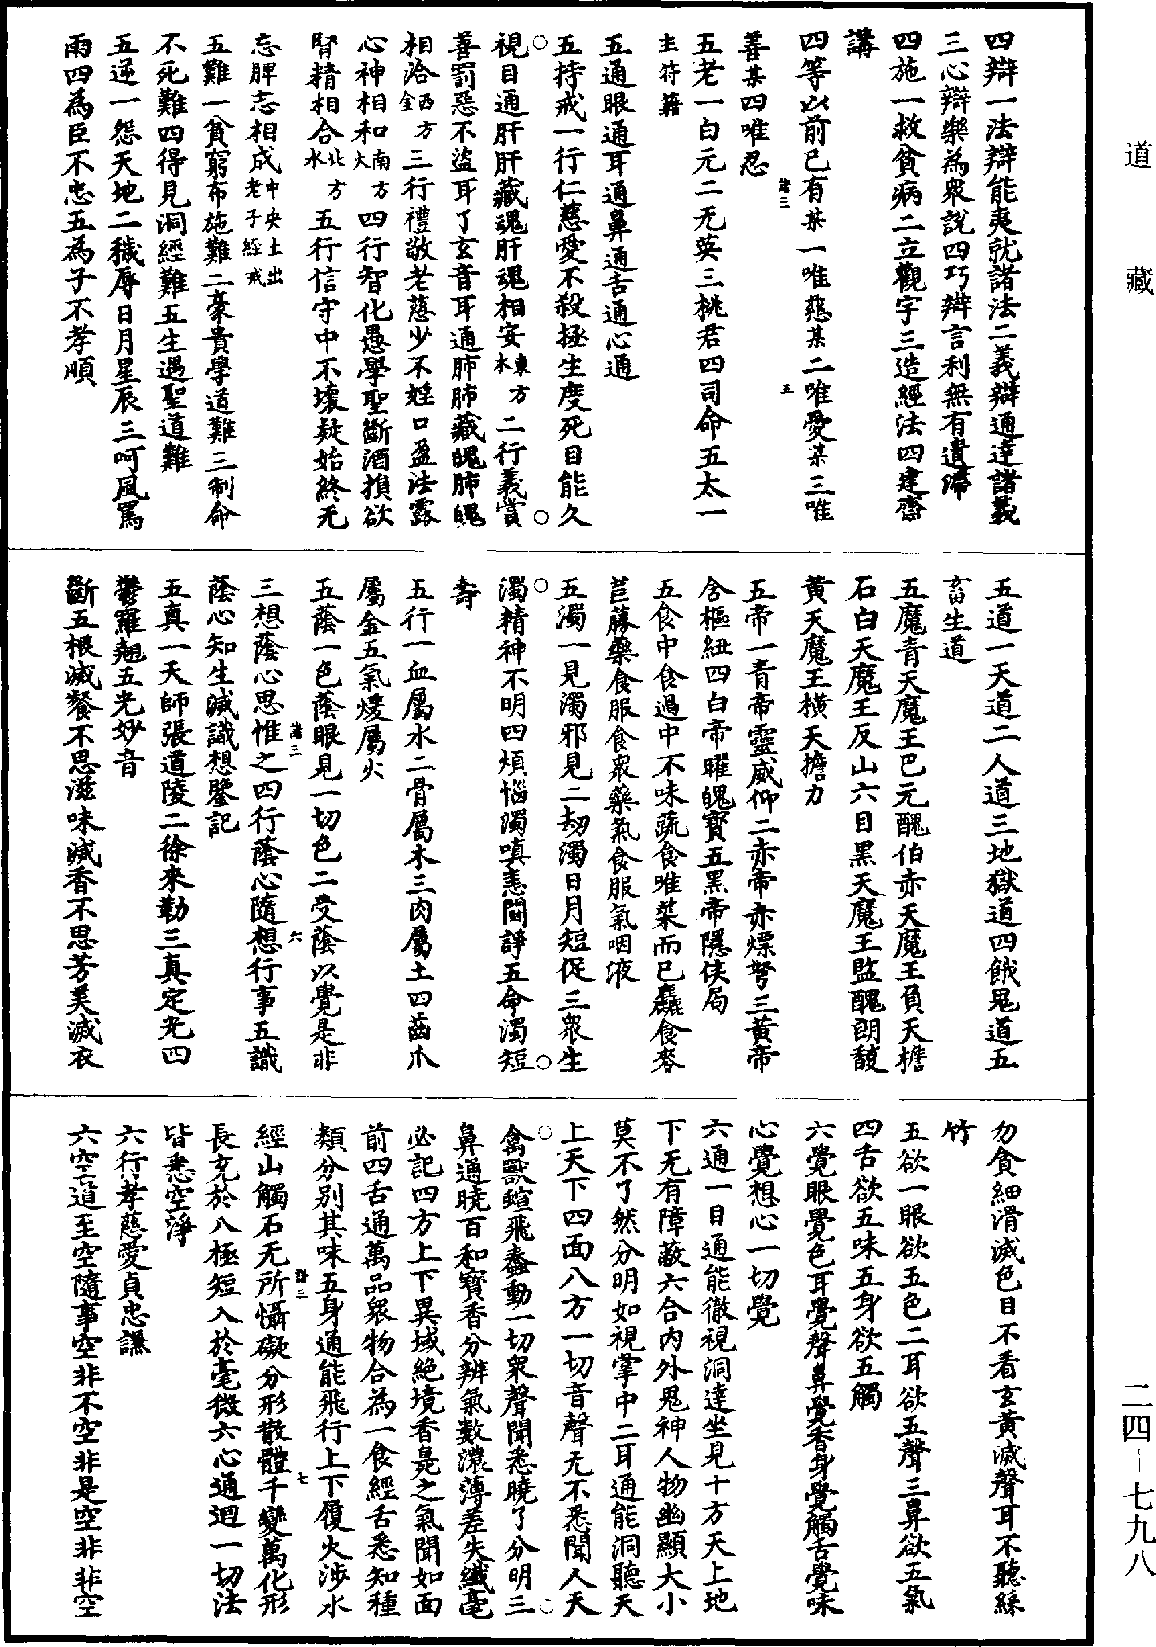 道藏
四辯一法辯能夷就諸法二義辯通達諸義
三心辯樂為衆說四巧辯言利無有遺滯
四施一救貧病二立觀宇三造經法四建齋
講
四等以前已有某一唯慈某二唯愛某三唯
善某四唯忍
五老一白元二无英三桃君四司命五太一
主符籍
五通眼通耳通鼻通舌通心通
五持戒一行仁慈愛不殺拯生度死目能久
視目通肝肝藏魂肝魂相安東方木二行義賞
善罰惡不盜耳了玄音耳通肺肺藏魄肺魄
相洽西方金三行禮敬老慈少不婬口盈法露
心神相和南方火四行智化愚學聖斷酒損欲
腎精相合北方水五行信守中不壞疑始終无
忘脾志相成中央土出老子經戒
五難一貧窮布施難二豪貴學道難三制命
不死難四得見洞經難五生遇聖道難
五逆一怨天地二穢辱日月星辰三呵風罵
雨四為臣不忠五為子不孝順
五道一天道二人道三地獄道四餓鬼道五
畜生道
五魔青天魔王巴元醜伯赤天魔王負天檐
石白天魔王反山六目黑天魔王監醜朗馥
黃天魔王橫天擔力
五帝一青帝靈威仰二赤帝赤熛弩三黃帝
含樞紐四白帝曜魄寶五黑帝隱侯局
五食中食過中不味蔬食唯菜而已麤食麥
苣蕂藥食服食衆藥氣食服氣咽液
五濁一見濁邪見二劫濁日月短促三衆生
濁精神不明四煩惱濁嗔恚閒諍五命濁短
壽
五行一血屬水二骨屬木三肉屬土四齒爪
屬金五氣煖屬火
五蔭一色蔭眼見一切色二受蔭以覺是非
三想蔭心思惟之四行蔭心隨想行事五識
蔭心知生滅識想鑒記
五真一天師張道陵二徐來勒三真定光四
鬱羅翹五光妙音
斷五根滅餐不思滋味滅香不思芳美滅衣
勿貪細滑滅色目不看玄黃滅聲耳不聽絲
竹
五欲一眼欲五色二耳欲五聲三鼻欲五氣
四舌欲五味五身欲五觸
六覺眼覺色耳覺聲鼻覺香身覺觸舌覺味
心覺想心一切覺
六通一目通能徹視洞達坐見十方天上地
下无有障蔽六合內外鬼神人物幽顯大小
莫不了然分明如視掌中二耳通能洞聽天
上天下四面八方一切音聲无不悉聞人天
禽獸蝖飛蠢動一切衆聲聞悉曉了分明三
鼻通曉百和寶香分辨氣數濃薄差失纖毫
必記四方上下異域絕境香臭之氣聞如面
前四舌通萬品衆物合為一食經舌悉知種
類分別其味五身通能飛行上下履火涉水
經山觸石无所懾礙分形散體千變萬化形
長充於八極短入於毫微六心通迴一切法
皆悉空淨
六行孝慈愛貞忠謙
六空道至空隨事空非不空非是空非非空
二四－七九八